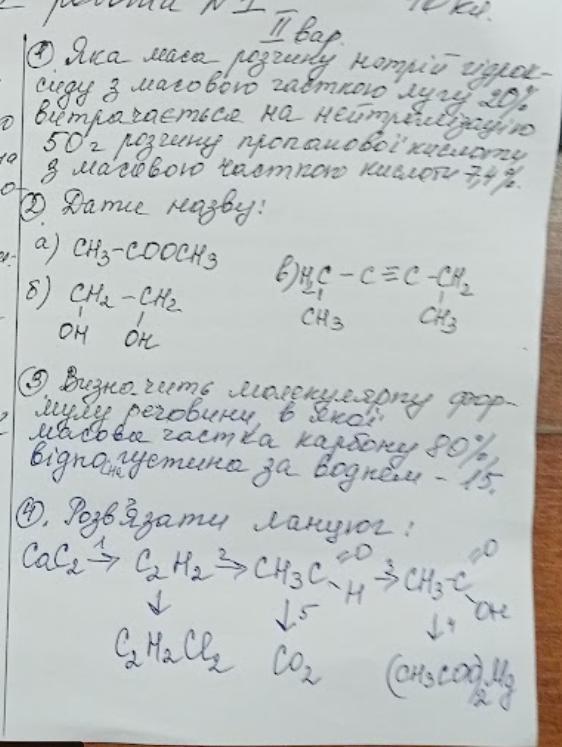 роботи №1 10 кл.
II вар.
① Яка маса розчину натрій гідрок-
сиду з масовою часткою лугу 20%
витрачається на нейтралізацію
50г розчину пропанової кислоти
з масовою часткою кислоти 7,4%.
② Дати назву:
а) CH3-COOCH3
б) CH2-CH2
OH OH
в) H2C-C≡C-CH2
CH3 CH3
③ Визначить молекулярну фор-
мулу речовини, в якої
масова частка карбону 80%,
відносна густина за воднем - 15.
④. Розв'язати ланцюг:
CaC2 →1 C2H2 2→ CH3C=O H 3→ CH3-C=O OH
↓ ↓5 ↓4
C2H2Cl2 CO2 (CH3COO)2Mg